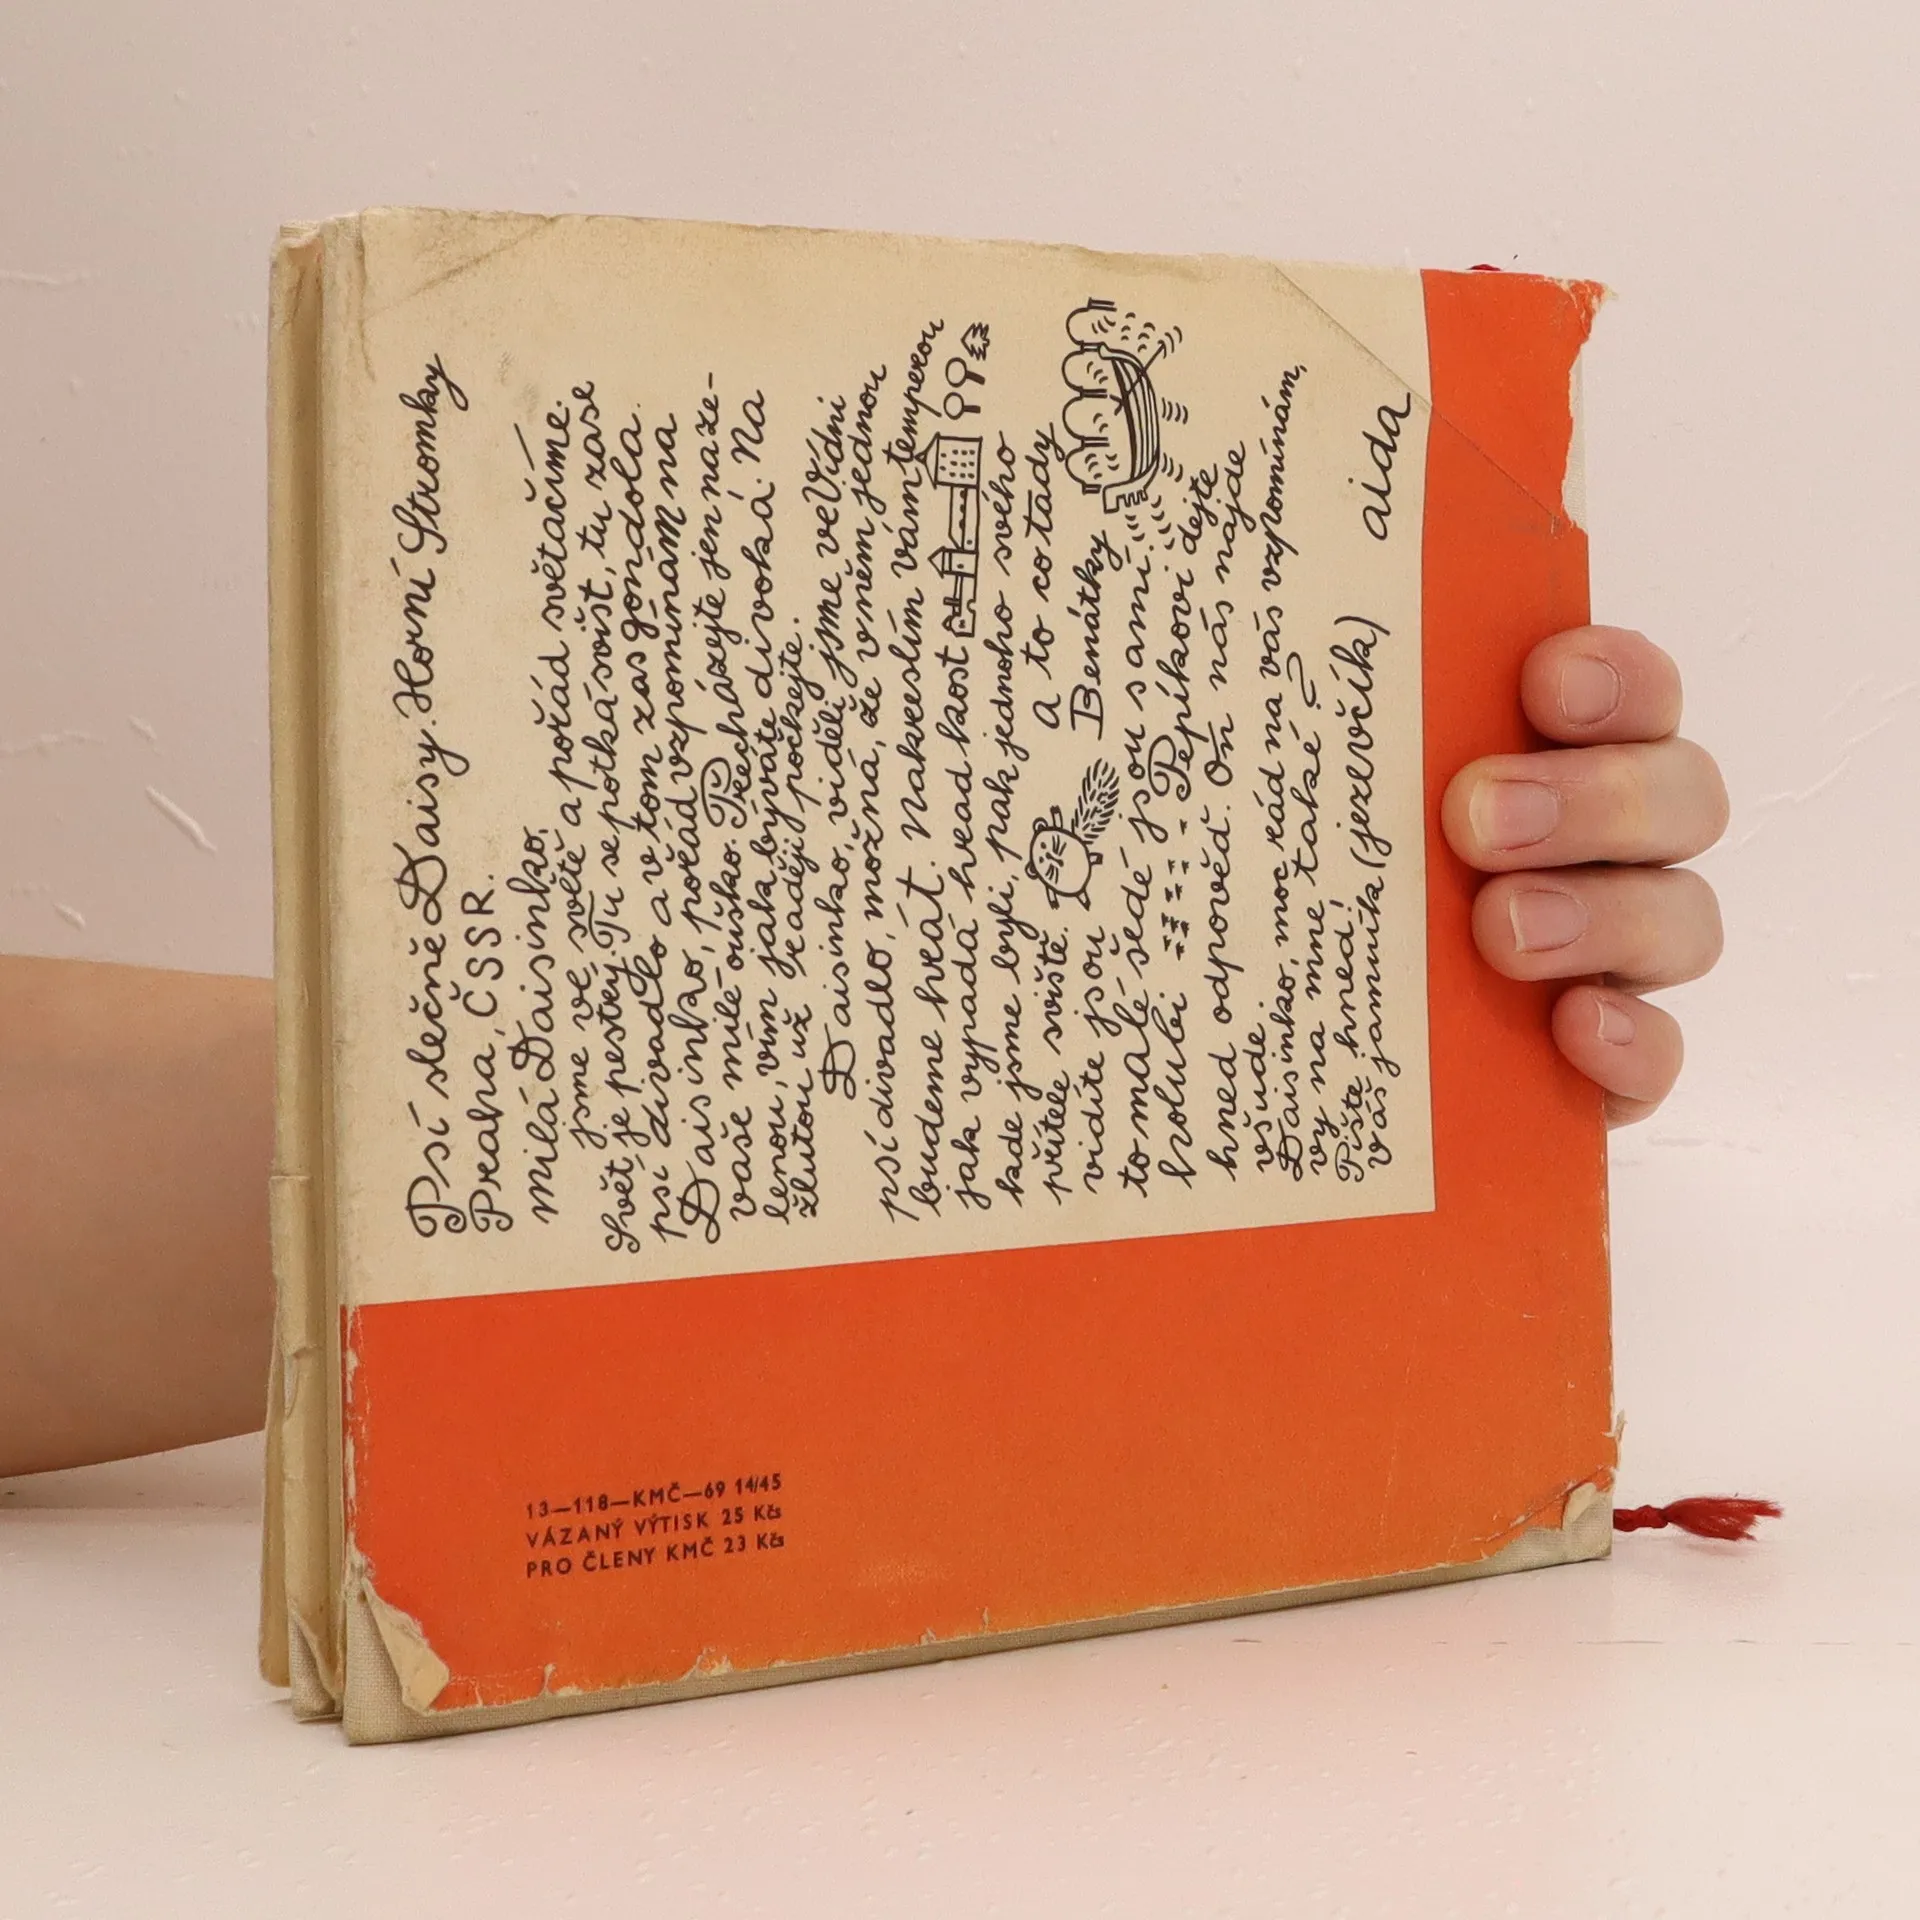 Psí slečně Daisy. Horní Stromky
Praha, ČSSR.
milá Daisinko,
jsme ve světě a pořád světačíme.
Svět je pestrý. Tu se potká svišt, tu zase
psí divadlo a v tom zas gondola.
Daisinko, pořád vzpomínám na
vaše milé ouško. Přecházejte jen na ze-
lenou, vím jak býváte divoká. Na
žlutou už raději počkejte.
Daisinko, viděli jsme ve Vídni
psí divadlo, možná, že v něm jednou
budeme hrát. Nakreslím vám temperou
jak vypadá hrad kost
kde jsme byli, pak jednoho svého
přítele sviště. A to co tady
vidíte jsou Benátky
to malé šedé jsou s ami.
holubi Pepíkovi dejte
hned odpověď. On nás najde
všude
Daisinko, moc rád na vás vzpomínám,
vy na mne také?
Pište hned!
Váš jamník (jezevčík) aida
13—118—KMČ—69 14/45
VÁZANÝ VÝTISK 25 Kčs
PRO ČLENY KMČ 23 Kčs